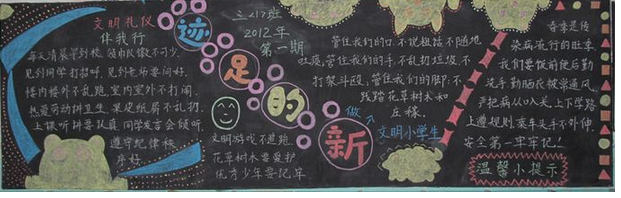 文明礼仪
伴我行
每天清晨早到校,领巾队徽不可少。
见到同学打招呼,见到老师要问好。
楼内楼外不乱跑,室内室外不打闹。
热爱劳动讲卫生,果皮纸屑不乱扔。
上课听讲要认真,同学发言会倾听。
遵守纪律秩
序好。
三217班
2012年
第一期
新的足迹
文明游戏不追跑
花草树木要爱护
优秀少年要记牢
管住我们的口,不说粗话不随地
吐痰,管住我们的手,不乱扔垃圾,不
打架斗殴,管住我们的脚,不
践踏花草树木和
丘稼。
做个
文明小学生
春季是传
染病流行的旺季
我们要饭前便后勤
洗手勤晒衣被常通风
严把病从口入关,上下学路
上遵规则,乘车头手不外伸
安全第一牢牢记!
温馨小提示